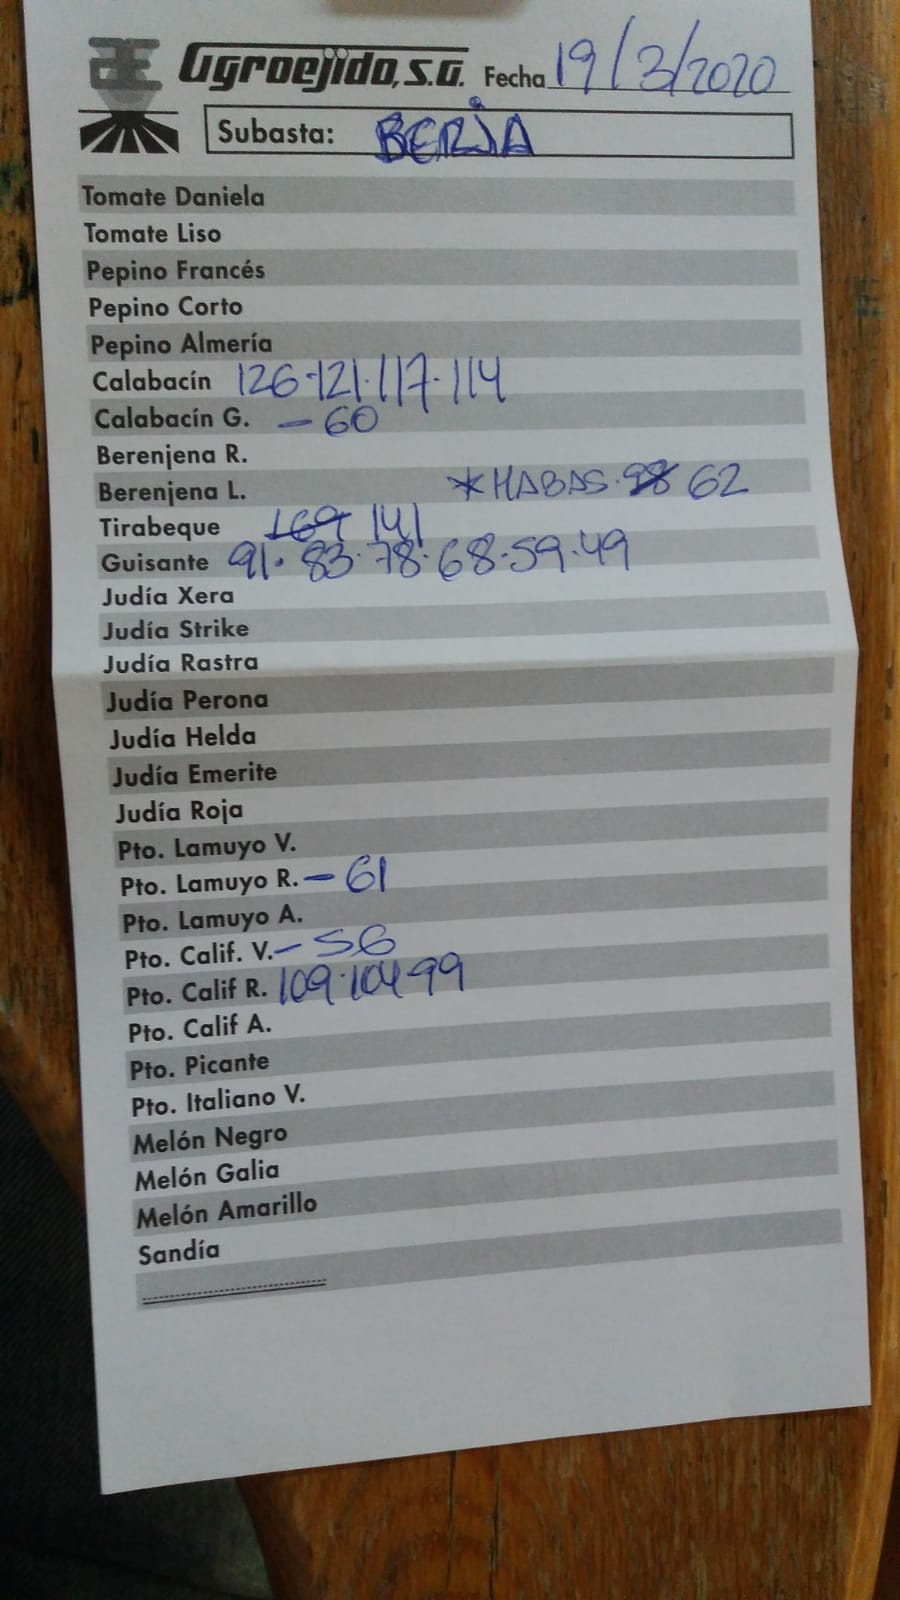 Agroejido, S.A. Fecha 19/3/2020
Subasta: BERJA
Tomate Daniela
Tomate Liso
Pepino Francés
Pepino Corto
Pepino Almería
Calabacín 126·121·117·114
Calabacín G. - 60
Berenjena R.
Berenjena L. *HABAS. 98 62
Tirabeque 169 141
Guisante 91· 83· 78· 68·59·49
Judía Xera
Judía Strike
Judía Rastra
Judía Perona
Judía Helda
Judía Emerite
Judía Roja
Pto. Lamuyo V.
Pto. Lamuyo R. - 61
Pto. Lamuyo A.
Pto. Calif. V. - 56
Pto. Calif R. 109·104 99
Pto. Calif A.
Pto. Picante
Pto. Italiano V.
Melón Negro
Melón Galia
Melón Amarillo
Sandía